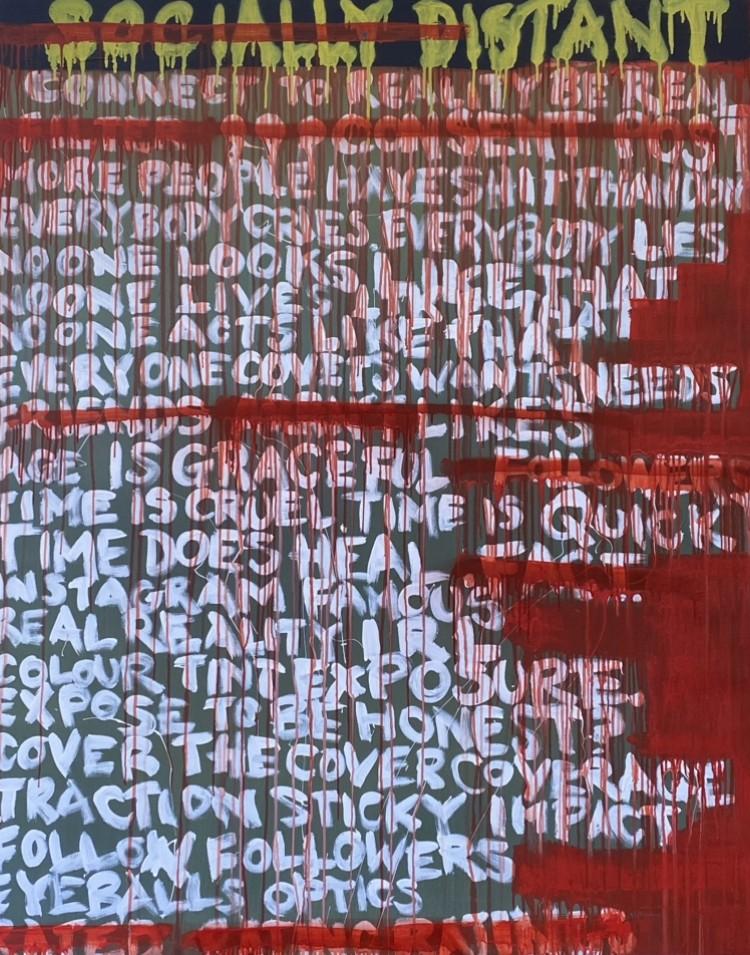 SOCIALLY DISTANT
CONNECT TO REALLY BE REAL
FILTER CONSENT POST
MORE PEOPLE
EVERYBODY CRIES EVERYBODY LIES
NO ONE LOOKS LIKE THAT
NO ONE LIVES LIKE THAT
NO ONE ACTS LIKE THAT
EVERYONE COVETS WANTS NEEDS
FRIENDS LIKES
AGE IS GRACEFUL FOLLOWERS
TIME IS CRUEL TIME IS QUICK
TIME DOES HEAL
INSTAGRAM FAMOUS
REAL REALITY IRL
COLOUR TINT EXPOSURE
EXPOSE TO BE HONEST
COVER THE COVER COVERAGE
TRACTION STICKY IMPACT
FOLLOW FOLLOWERS
EYEBALLS OPTICS